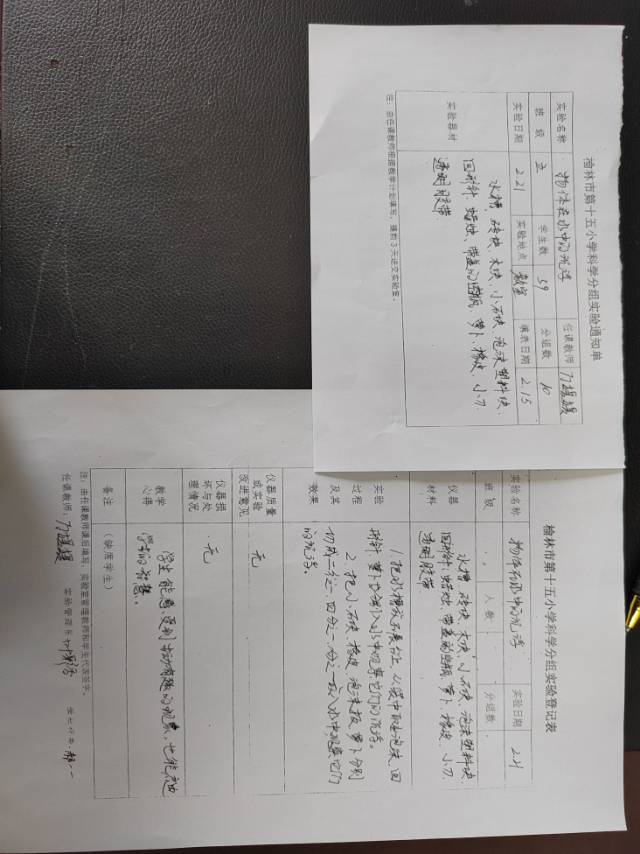 榆林市第十五小学科学分组实验通知单
实验名称 物体在水中的沉浮 任课教师
班级 五 学生数 59 分组数 10
实验日期 2.21 实验地点 教室 填表日期 2.15
实验器材 水槽、砖块、木块、小石块、泡沫塑料块、
回形针、蜡烛、带盖的空瓶、萝卜、橡皮、小刀
透明胶带
注：由任课教师根据教学计划填写，提前3天送交实验室。
榆林市第十五小学科学分组实验登记表
实验名称 物体在水中的沉浮 实验日期 2.21
班级 人数 分组数
仪器材料 水槽、砖块、木块、小石块、泡沫塑料块、
回形针、蜡烛、带盖的空瓶、萝卜、橡皮、小刀
透明胶带
实验过程及其效果 1.把水槽放在展台上，从袋中取出泡沫、回
形针、萝卜分别入水中观察它们的沉浮。
2.把小石块、橡皮、泡沫板、萝卜分别
切成二分之一、四分之一、八分之一放入水中，观察它们
的沉浮。
仪器质量或实验改进意见 无
仪器损坏与处理情况 无
教学心得 学生能感受到
学的智慧。
备注 （缺席学生）
注：由任课教师课后填写，实验室管理教师和学生代表签字。
任课教师： 实验管理员 学生代表